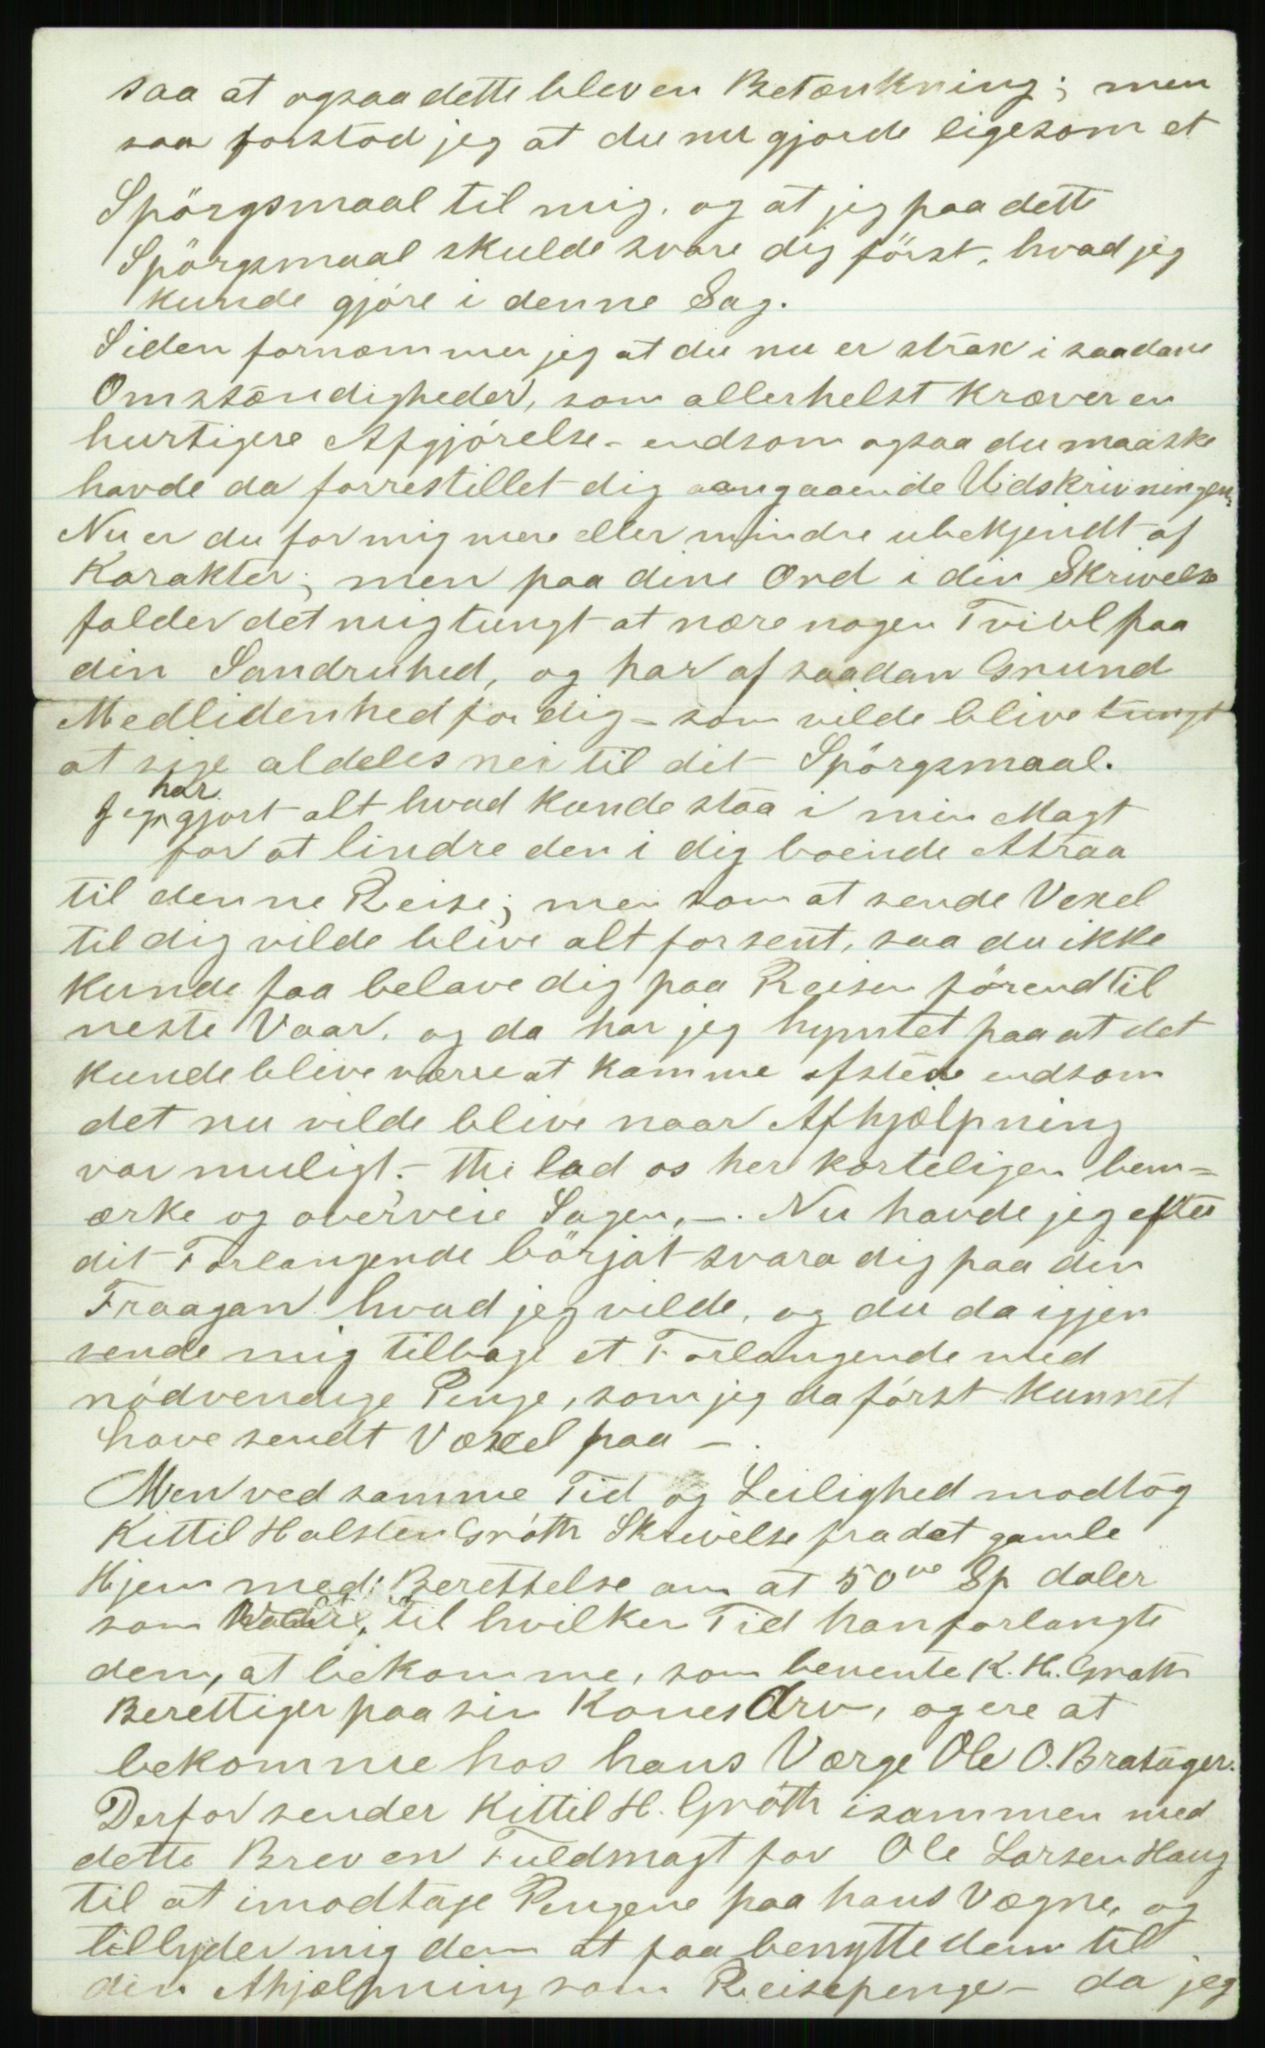 saa at ogsaa dette blev en Betænkning; men
saa forstod jeg at du nu gjorde ligesom et
Spörgsmaal til mig. og at jeg paa dette
Spörgsmaal skulde svare dig först, hvad jeg
kunde gjöre i denne Sag.
Siden fornæmmer jeg at du nu er strax i saadane
Omstændigheder, som allerhelst kræver en
hurtigere Afgjörelse - endsom ogsaa du maaske
havde da forrestillet dig aangaaende Udskrivningen.
Nu er du for mig mere eller mindre ubekjendt af
Karakter; men paa dine Ord i din Skrivelse
falder det mig tungt at nære nogen Tvivl paa
din Sandruhed, og har af saadan Grund
Medlidenhed for dig - som vilde blive tungt
at sige aldeles nei til dit Spörgsmaal.
Jeg har gjort alt hvad kunde staa i min Magt
for at lindre den i dig boende Atraa
til denne Reise; men som at sende Vexel
til dig vilde blive alt for sent, saa du ikke
kunde faa belave dig paa Reisen förend til
neste Vaar. og da har jeg hyntet paa at det
kunde blive værre at komme afsted endsom
det nu vilde blive naar Afhjælpning
var muligt. - thi lad os her korteligen bem=
ærke og overveie Sagen, -. Nu havde jeg efter
dit Forlangende börjat svara dig paa din
Fraagan hvad jeg vilde, og du da igjen
sende mig tilbage et Forlangende med
nödvendige Penge, som jeg da först kunnet
have sendt Væxel paa -.
Men ved samme Tid og Leilighed modtog
Kittil Halsten Gróth Skrivelse fra det gamle
Hjem med: Berettelse om at 50ve Sp daler
som til hvilken Tid han forlangte
dem, at bekomme, som benente K. H. Groth
Berettiger paa sin Kones Arv, og ere at
bekomme hos hans Værge Ole O. Bratager.
Derfor sender Kittil H. Gróth isammen med
dette Brev en Fuldmagt for Ole Larsen Haug
til at imodtage Pengene paa hans Vægne, og
tillyder mig dem at faa benytte dem til
din Ahjælpning som Reisepenge - da jeg